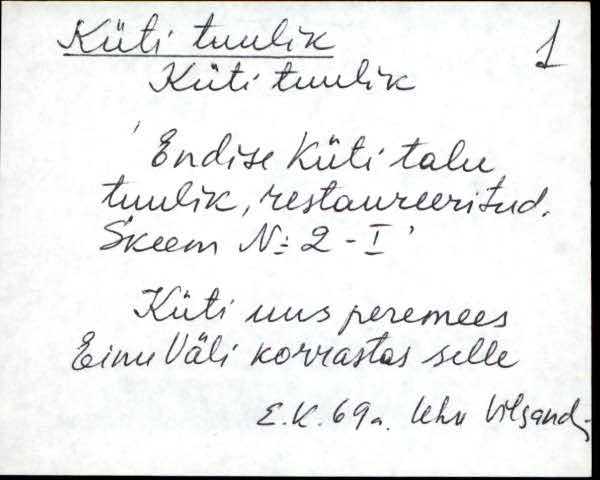 Küti tuulik 1
Küti tuulik
' Endise Küti talu
tuulik, restaureeritud.
Skeem N: 2 - I '
Küti uus peremees
Einu Väli korrastas selle
E.K. 69a. Uhv